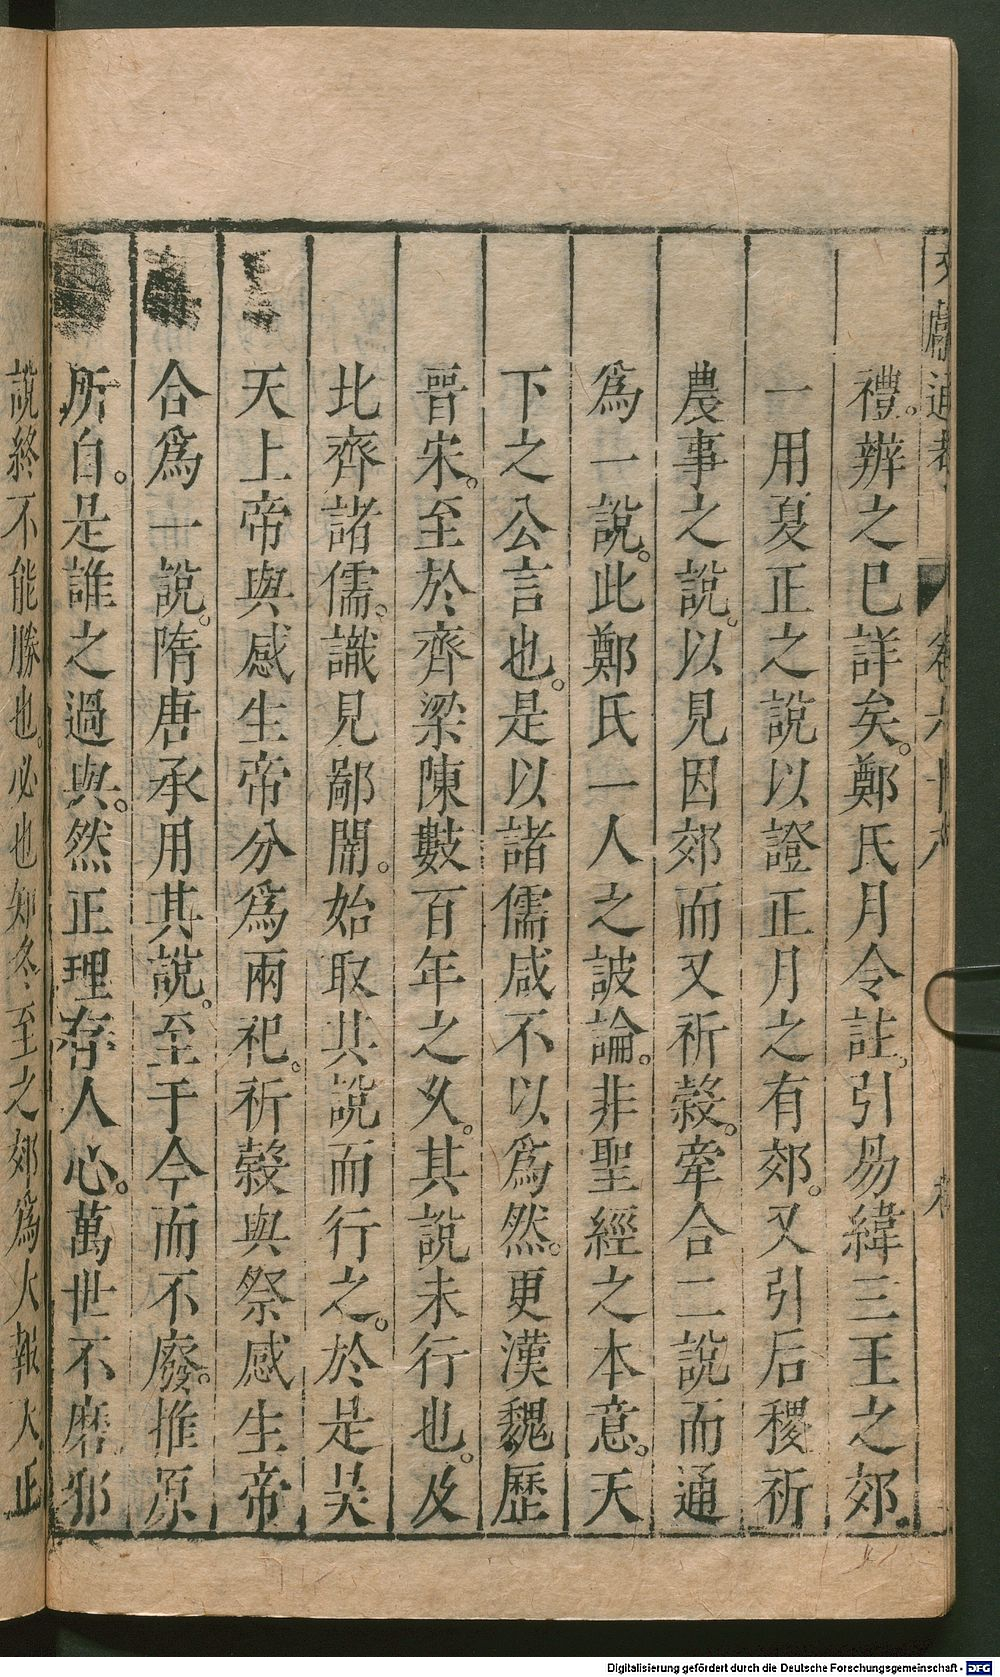 文獻通考 卷六十八
禮。辨之已詳矣。鄭氏月令註。引易緯三王之郊。
一用夏正之說以證正月之有郊。又引后稷祈
農事之說。以見因郊而又祈穀。牽合二說而通
爲一說。此鄭氏一人之詖論。非聖經之本意。天
下之公言也。是以諸儒咸不以爲然。更漢魏歷
晋宋。至於齊梁陳數百年之久。其說未行也。及
北齊諸儒。識見鄙闇。始取其說而行之。於是昊
天上帝與感生帝分爲兩祀。祈穀與祭感生帝
合爲一說。隋唐承用其說。至于今而不廢。推原
所自。是誰之過與。然正理存人心。萬世不磨邪
說終不能勝也。必也知冬至之郊爲大報天。正
Digitalisierung gefördert durch die Deutsche Forschungsgemeinschaft - DFG